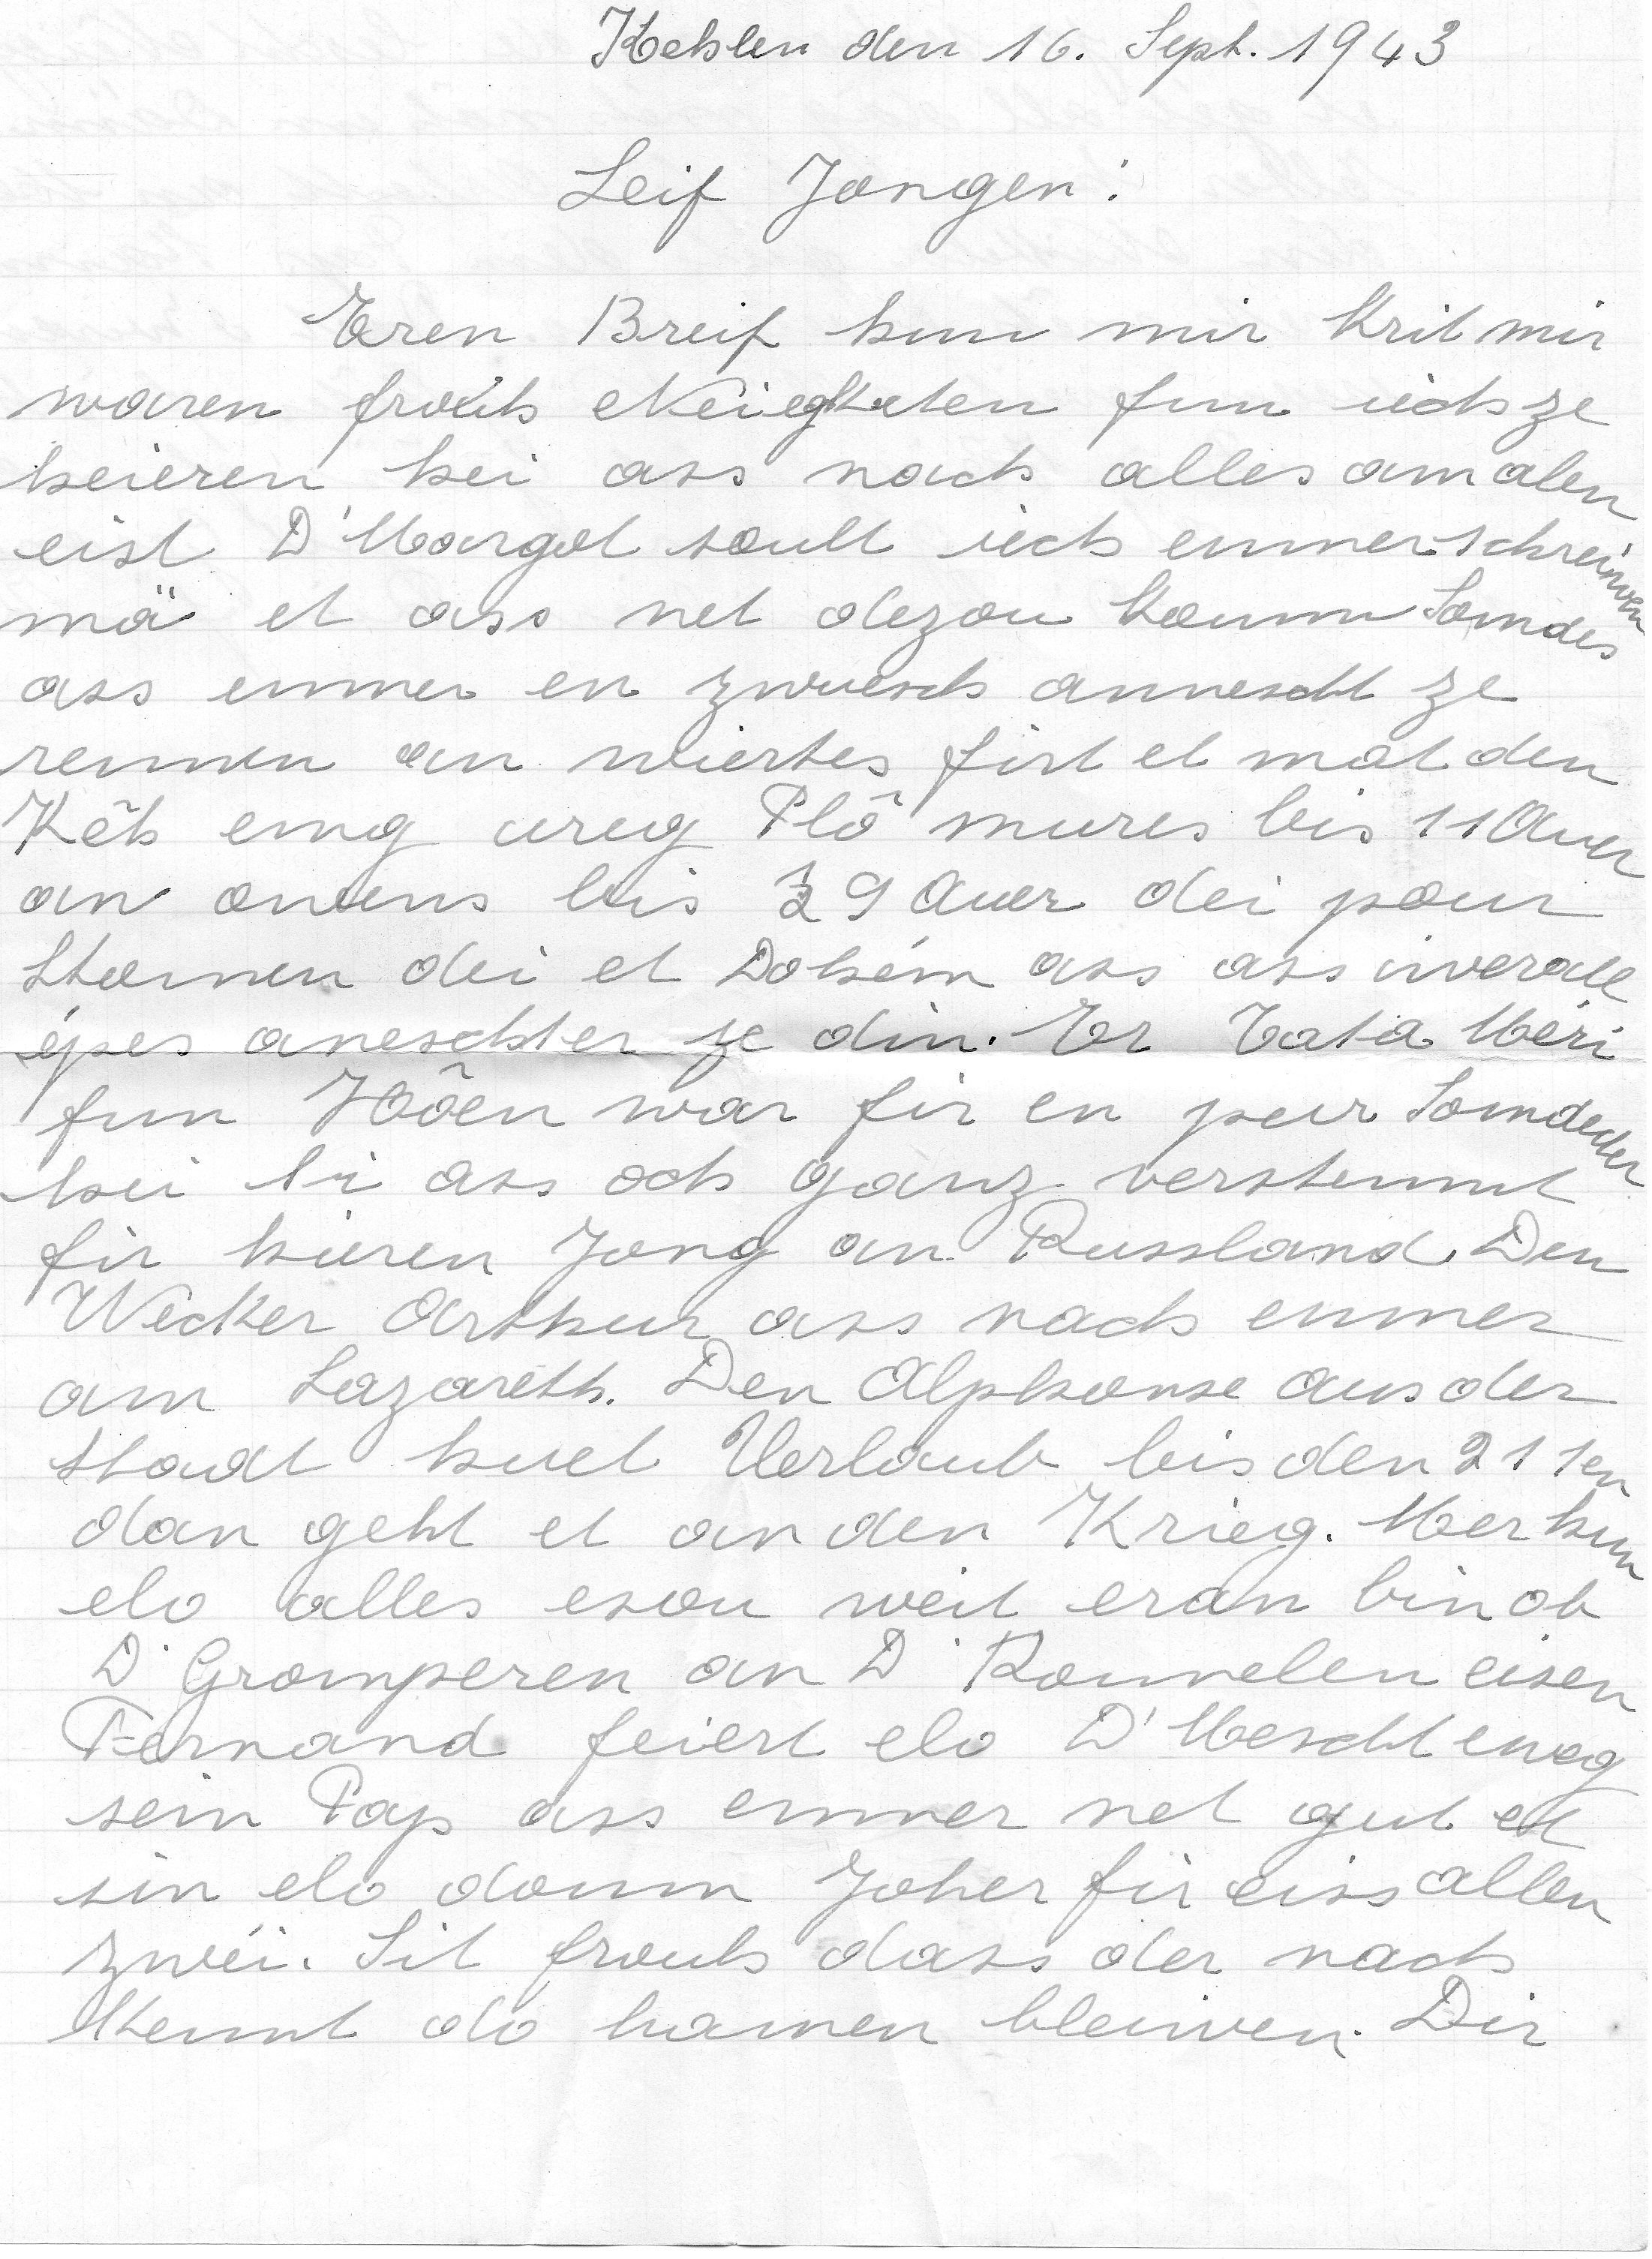 Kehlen den 16. Sept. 1943
Leif Jongen!
Eren Breif hun mir krit mir
waren frouh Neiegketen fun iech ze
heieren hei ass nach alles am alen
eist D'Margot soull iech emmer schreiwen
mä et ass net dezou koumm Somdes
ass emmer en zwuesch annescht ze
rennen an wiertes firt et mat den
Kéh emg ureg Plô mures bis 11 Auer
an owens bis ½ 9 Auer dei pour
Stonnen dei et Dohém ass ass iwerall
épes aneschter ze din. Er Tata Méri
fun Hôen war fir en peur Somdecher
hei Si ass och ganz verstemmt
fir hieren Jong an Russland. Den
Wecker Arthur ass nach emmer
am Lazareth. Den Alphonse aus der
Stadt huet Uerlaub bis den 21 ten
dan geht et an den Krieg. Mer hun
elo alles esou weit eran bin ob
D'Gromperen an D'Rommelen eisen
Fernand feiert elo D'Mescht eweg
sein Pap ass emmer net gut et
sin elo domm Joher fir eiss allen
zwéi. Sit frouh dass der nach
kennt do hannen bleiwen. Dir